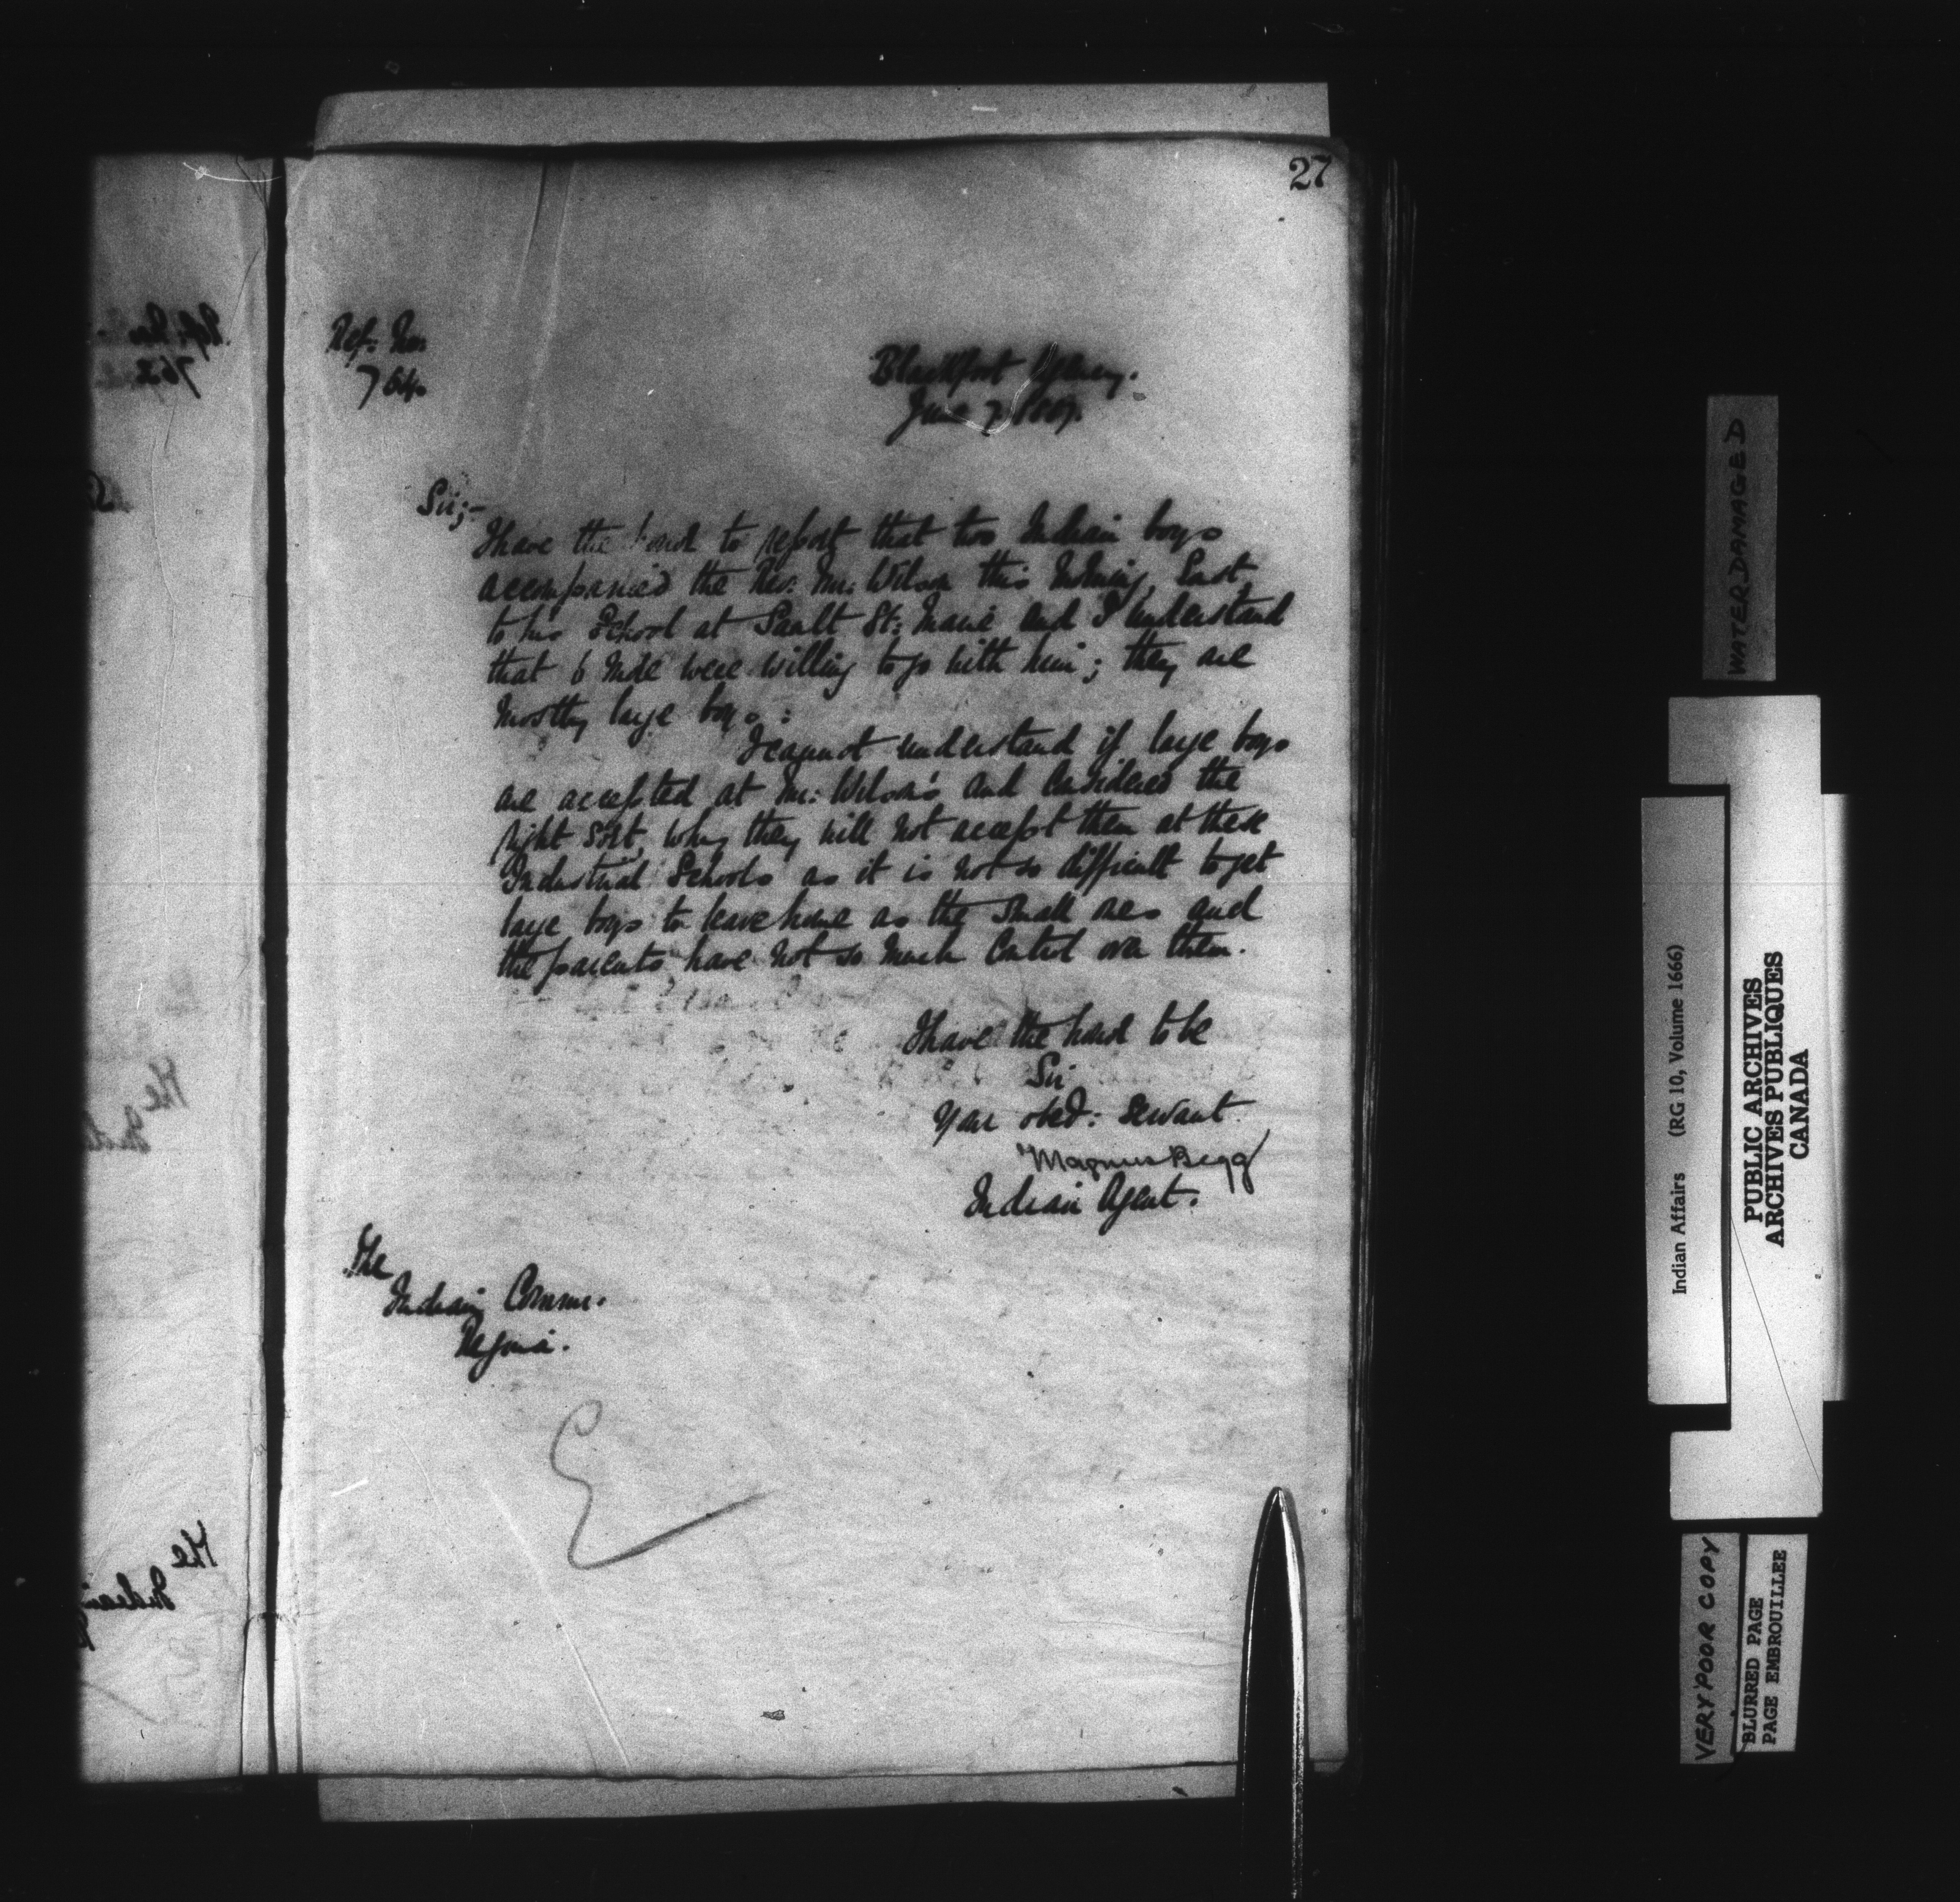 27
Ref: No.
764.
Blackfoot Agency.
June 7
Sir;-
I have the honor to report that two Indian boys
accompanied the Rev: Mr. Wilson this morning, East,
to his School at Sault St: Marie and I understand
that 6 more were willing to go with him; they are
mostly large boys:
I cannot understand if large boys
are accepted at Mr: Wilson's and considered the
right sort, why they will not accept them at these
Industrial Schools as it is not so difficult to get
large boys to leave home as the small ones and
the parents have not so much control over them.
I have the honor to be
Sir
Your obed: servant.
Magnus Begg
Indian Agent.
The
Indian Comm.
Regina.
Ref: No.
762
The
The
Indian
WATER DAMAGED
Indian Affairs (RG 10, Volume 1666)
PUBLIC ARCHIVES
ARCHIVES PUBLIQUES
CANADA
VERY POOR COPY
BLURRED PAGE
PAGE EMBROUILLEE